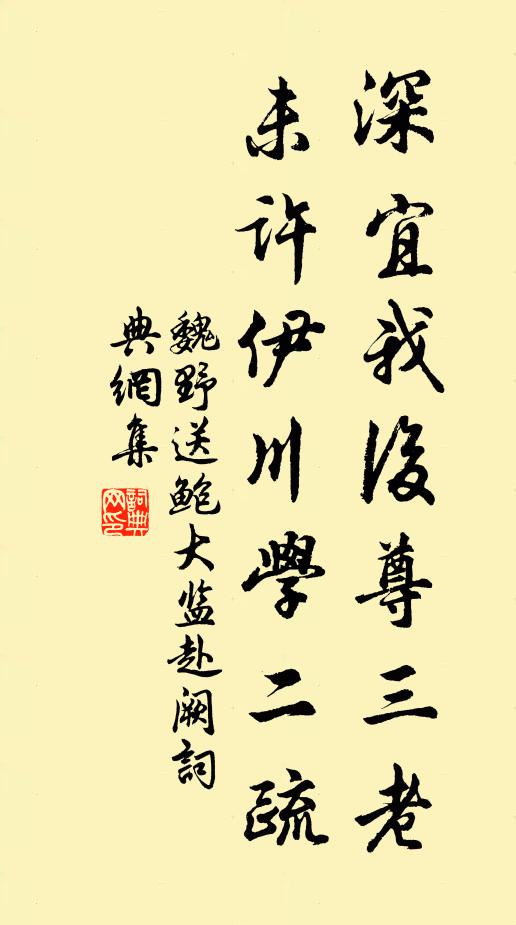 深宜我後尊三老
未许伊川學二疏
魏野送鲍大监赴阙詞
典網集
詞典網印